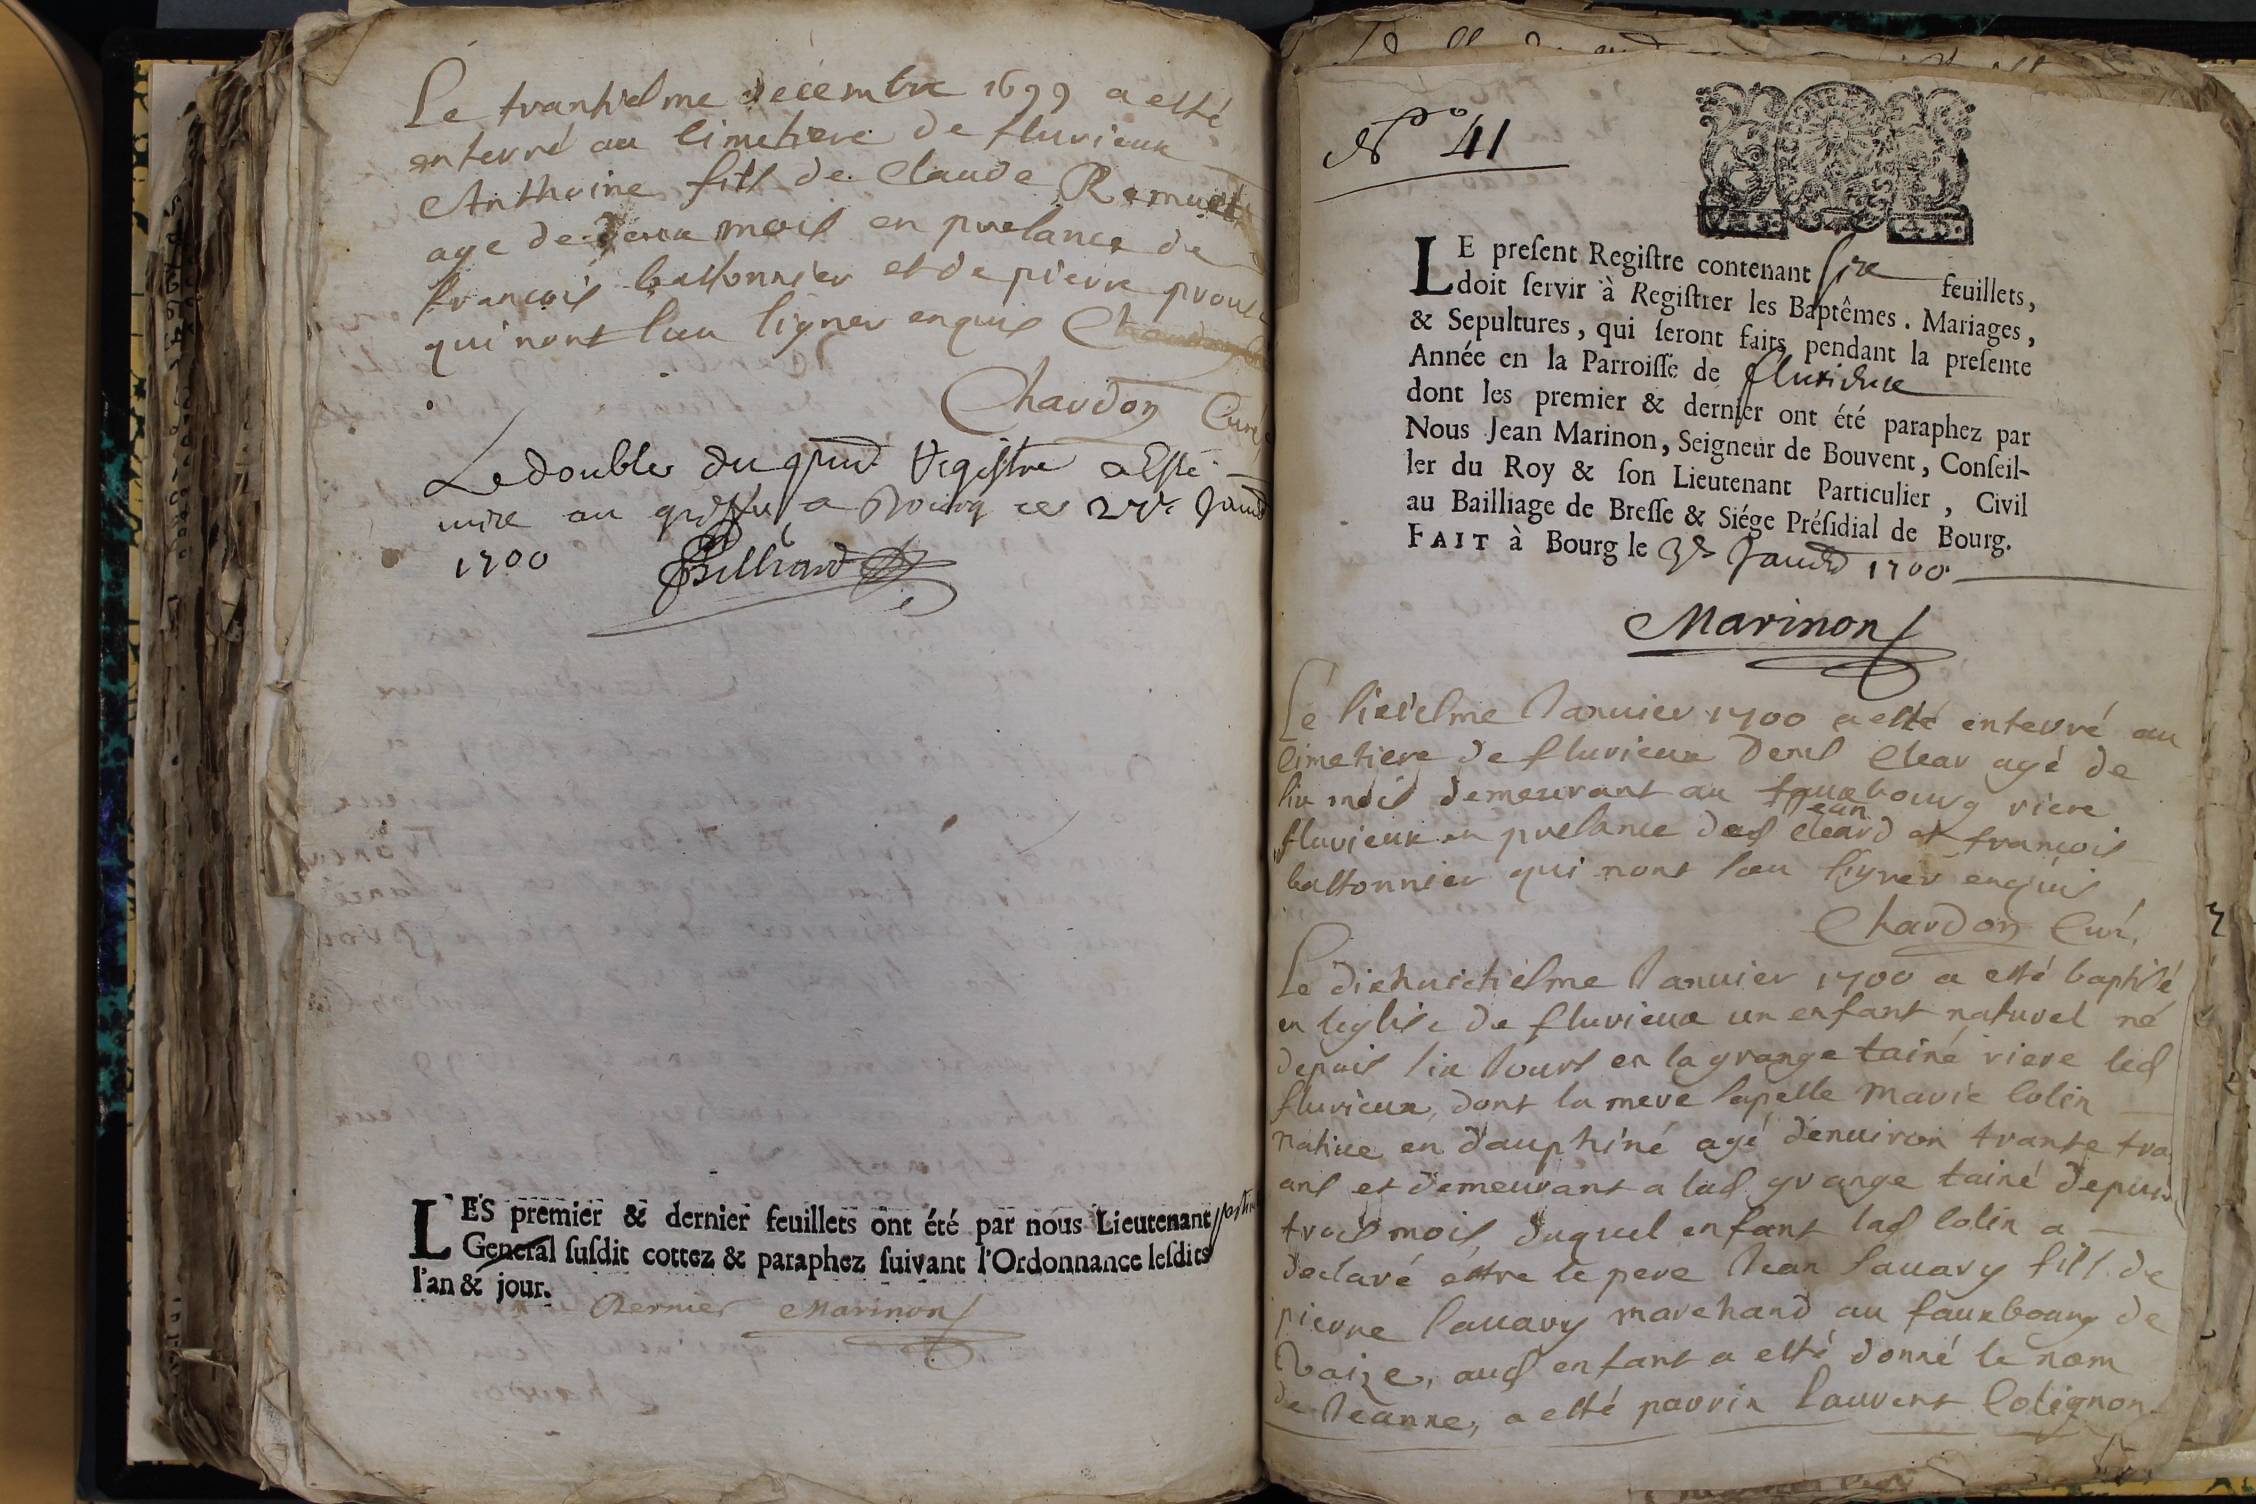 Le trantiesme decembre 1699 a esté
enterré au cimetiere de fluvieux
Anthoine fils de Claude Remuet
age de deux mois en presance de
françois bastonnier et de pierre
qui nont sceu signer enquis
Chardon Curé
Le double du pnt Registre a Esté
mise au greffe a Bourg ce Janv
1700 Billiard
LES premier & dernier feuillets ont été par nous Lieutenant
General susdit cottez & paraphez suivant l'Ordonnance lesdits
l'an & jour.
Dernier Marinon
No 41
LE present Registre contenant six feuillets,
doit servir à Registrer les Baptêmes. Mariages,
& Sepultures, qui seront faits pendant la presente
Année en la Parroisse de fluvieux
dont les premier & dernier ont été paraphez par
Nous Jean Marinon, Seigneur de Bouvent, Conseil-
ler du Roy & son Lieutenant Particulier, Civil
au Bailliage de Bresse & Siége Présidial de Bourg.
FAIT à Bourg le 3e Janv 1700
Marinon
Le sixiesme Janvier 1700 a esté enterré au
cimetiere de fluvieux Denis Clear agé de
six mois demeurant au fauxbourg riere
fluvieux en presance de Jean Cleard et françois
bastonnier qui nont sceu signer enquis
Chardon Curé
Le dixhuictiesme Janvier 1700 a esté baptisé
en leglise de fluvieux un enfant naturel né
depuis six Jours en la grange tainé riere led
fluvieux, dont la mere sapelle Marie Colin
native en dauphiné agé denviron trante
ans et demeurant a lad grange tainé depuis
trois mois, duquel enfant lad Colin a
declaré estre le pere Jean Savary fils de
pierre Savary marchand au fauxbourg de
Vaize, aud enfant a esté donné le nom
de Jeanne, a esté parrin Laurent Cotignon